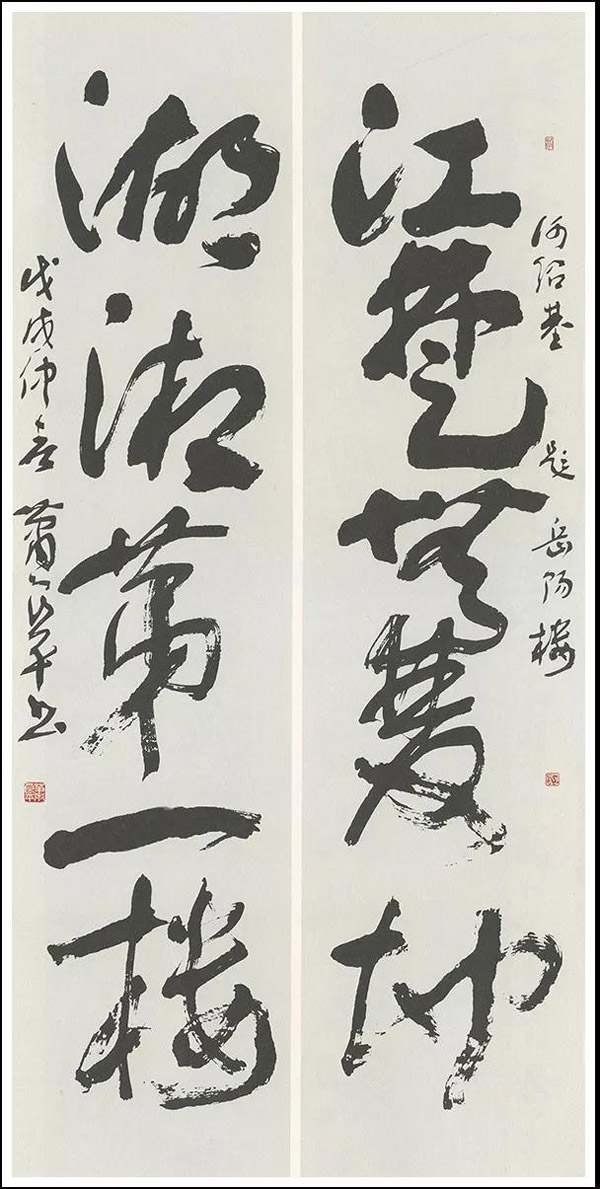 何绍基 题 岳阳楼
江楚無雙地
湖湘第一楼
戊戌仲春 萧 书